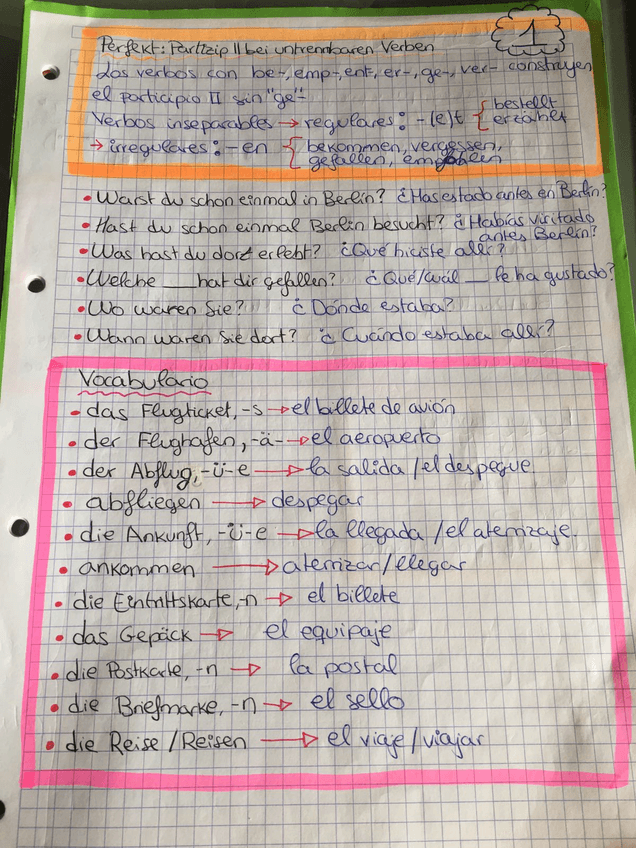 1
Perfekt: Partizip II bei untrennbaren Verben
Los verbos con be-, emp-, ent-, er-, ge-, ver- construyen
el participio II sin "ge"-
Verbos inseparables → regulares: -(e)t { bestellt
erzählt
→ irregulares: -en { bekommen, vergessen,
gefallen, empfohlen
• Warst du schon einmal in Berlin? ¿Has estado antes en Berlin?
• Hast du schon einmal Berlin besucht? ¿Habías visitado
antes Berlin?
• Was hast du dort erlebt? ¿Qué hiciste allí?
• Welche ___ hat dir gefallen? ¿Qué/cuál __ te ha gustado?
• Wo waren Sie? ¿Dónde estaba?
• Wann waren Sie dort? ¿Cuándo estaba allí?
Vocabulario
• das Flugticket, -s → el billete de avión
• der Flughafen, -ä- → el aeropuerto
• der Abflug, -ü-e → la salida / el despegue.
• abfliegen → despegar
• die Ankunft, -ü-e → la llegada / el aterrizaje.
• ankommen → aterrizar/llegar
• die Eintrittskarte, -n → el billete
• das Gepäck → el equipaje
• die Postkarte, -n → la postal
• die Briefmarke, -n → el sello
• die Reise / Reisen → el viaje / viajar